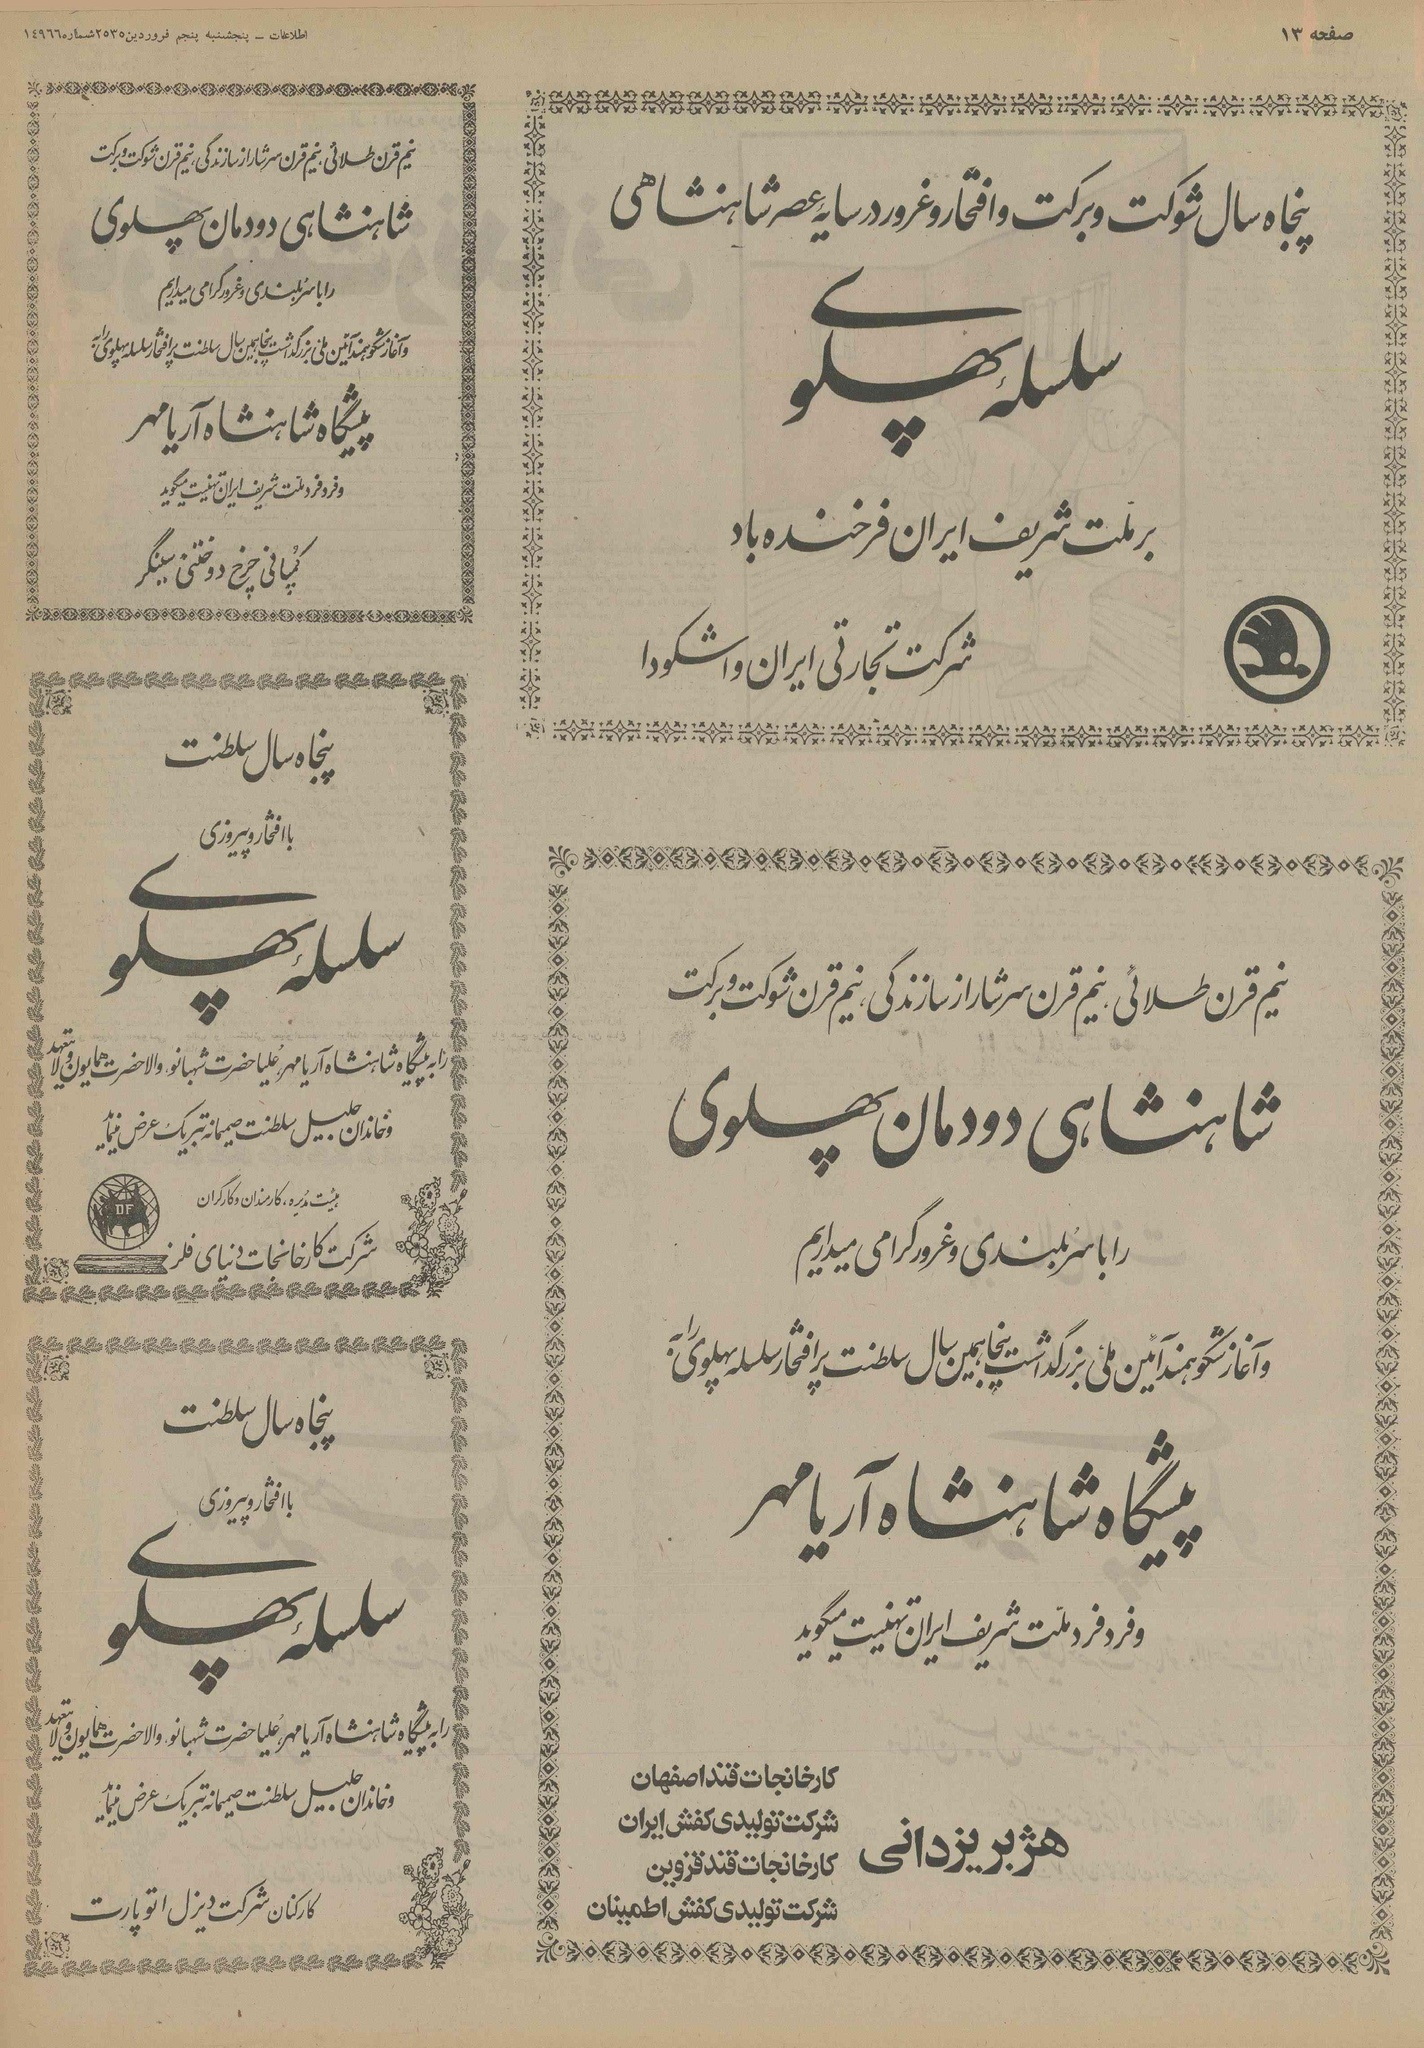 صفحه ۱۳
اطلاعات ــ پنجشنبه پنجم فروردین ۲۵۳۵ شماره ۱٤۹٦٦
پنجاه سال شوکت و برکت و افتخار و غرور در سایهٔ عصر شاهنشاهی
سلسلهٔ پهلوی
بر ملّت شریف ایران فرخنده باد
شرکت تجارتی ایران و اشکودا
نیم قرن طلائی، نیم قرن سرشار از سازندگی، نیم قرن شوکت و برکت
شاهنشاهی دودمان پهلوی
را با سربلندی و غرور گرامی میداریم
و آغاز شکوهمند آئین ملی بزرگداشت پنجاهمین سال سلطنت پرافتخار سلسله پهلوی را به
پیشگاه شاهنشاه آریامهر
و فرد فرد ملّت شریف ایران تهنیت میگوید
هژبر یزدانی
کارخانجات قند اصفهان
شرکت تولیدی کفش ایران
کارخانجات قند قزوین
شرکت تولیدی کفش اطمینان
نیم قرن طلائی، نیم قرن سرشار از سازندگی، نیم قرن شوکت و برکت
شاهنشاهی دودمان پهلوی
را با سربلندی و غرور گرامی میداریم
و آغاز شکوهمند آئین ملی بزرگداشت پنجاهمین سال سلطنت پرافتخار سلسله پهلوی را به
پیشگاه شاهنشاه آریامهر
و فرد فرد ملت شریف ایران تهنیت میگوید
کمپانی چرخ دوختنی سینگر
پنجاه سال سلطنت
با افتخار و پیروزی
سلسلهٔ پهلوی
را به پیشگاه شاهنشاه آریامهر، علیاحضرت شهبانو، والاحضرت همایون ولایتعهد
و خاندان جلیل سلطنت صمیمانه تبریک عرض مینماید
هیئت مدیره، کارمندان و کارگران
شرکت کارخانجات دنیای فلز
DF
پنجاه سال سلطنت
با افتخار و پیروزی
سلسلهٔ پهلوی
را به پیشگاه شاهنشاه آریامهر، علیاحضرت شهبانو، والاحضرت همایون ولایتعهد
و خاندان جلیل سلطنت صمیمانه تبریک عرض مینماید
کارکنان شرکت دیزل اتوپارت